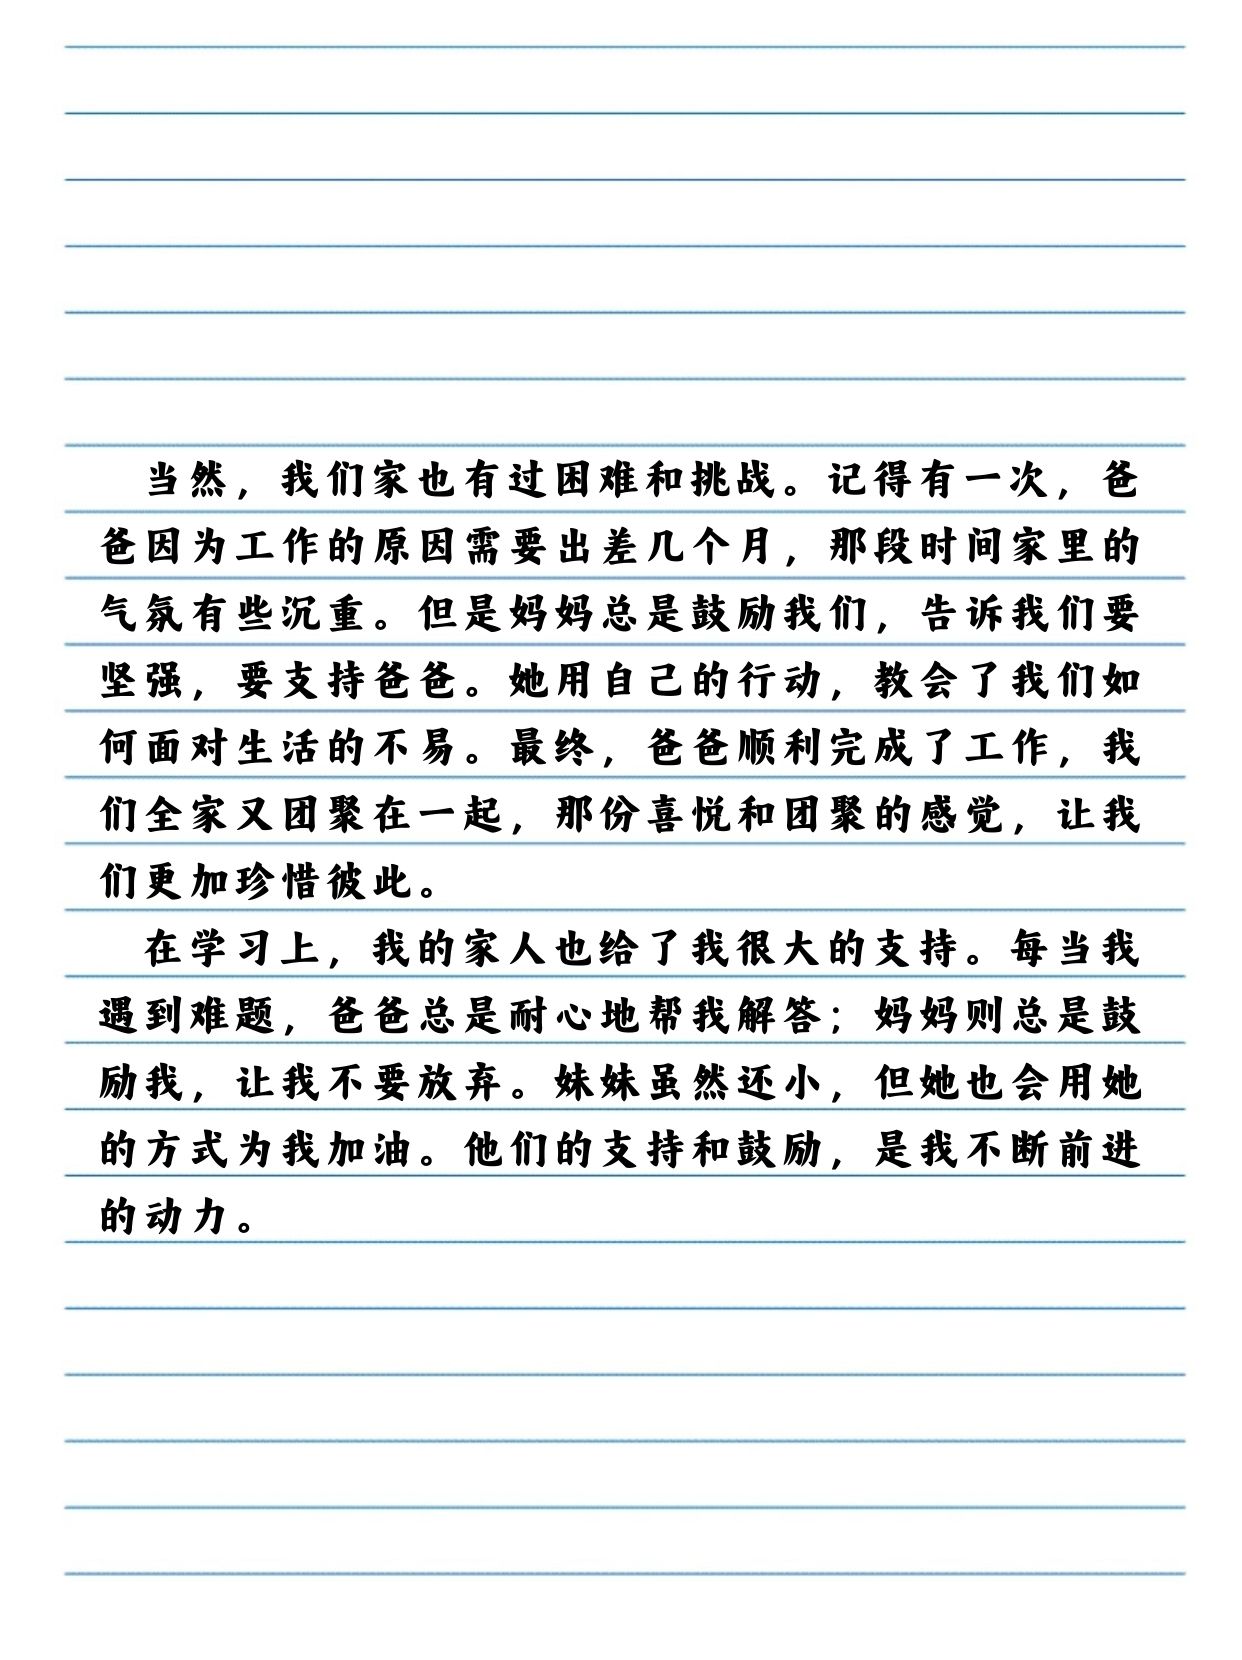 当然，我们家也有过困难和挑战。记得有一次，爸
爸因为工作的原因需要出差几个月，那段时间家里的
气氛有些沉重。但是妈妈总是鼓励我们，告诉我们要
坚强，要支持爸爸。她用自己的行动，教会了我们如
何面对生活的不易。最终，爸爸顺利完成了工作，我
们全家又团聚在一起，那份喜悦和团聚的感觉，让我
们更加珍惜彼此。
在学习上，我的家人也给了我很大的支持。每当我
遇到难题，爸爸总是耐心地帮我解答；妈妈则总是鼓
励我，让我不要放弃。妹妹虽然还小，但她也会用她
的方式为我加油。他们的支持和鼓励，是我不断前进
的动力。